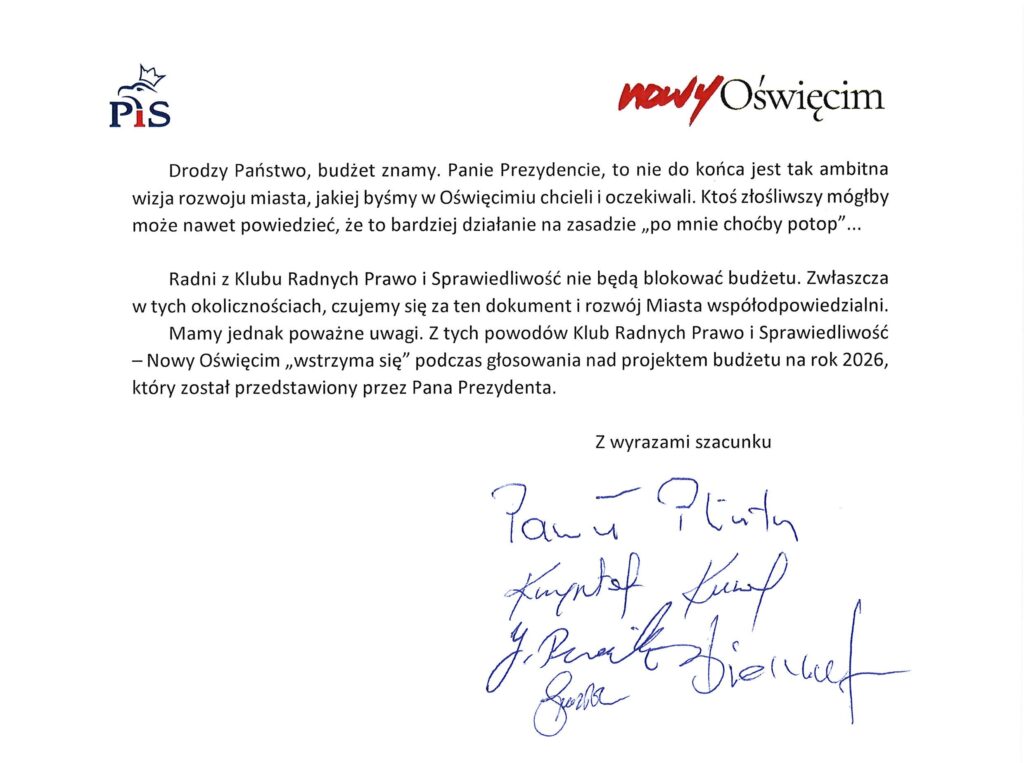 PiS
nowy Oświęcim
Drodzy Państwo, budżet znamy. Panie Prezydencie, to nie do końca jest tak ambitna
wizja rozwoju miasta, jakiej byśmy w Oświęcimiu chcieli i oczekiwali. Ktoś złośliwszy mógłby
może nawet powiedzieć, że to bardziej działanie na zasadzie „po mnie choćby potop”...
Radni z Klubu Radnych Prawo i Sprawiedliwość nie będą blokować budżetu. Zwłaszcza
w tych okolicznościach, czujemy się za ten dokument i rozwój Miasta współodpowiedzialni.
Mamy jednak poważne uwagi. Z tych powodów Klub Radnych Prawo i Sprawiedliwość
– Nowy Oświęcim „wstrzyma się” podczas głosowania nad projektem budżetu na rok 2026,
który został przedstawiony przez Pana Prezydenta.
Z wyrazami szacunku
Krzysztof